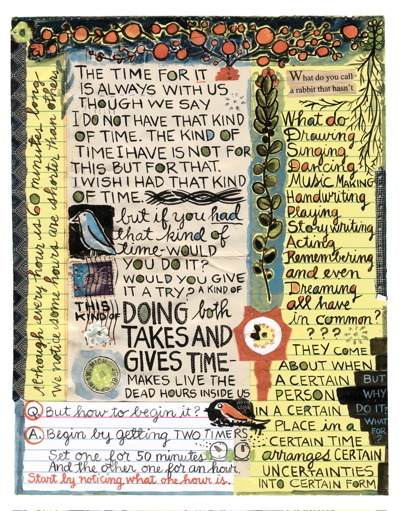 THE TIME FOR IT
IS ALWAYS WITH US
THOUGH WE SAY
I DO NOT HAVE THAT KIND
OF TIME. THE KIND OF
TIME I HAVE IS NOT FOR
THIS BUT FOR THAT.
I WISH I HAD THAT KIND
OF TIME.
but if you had
that kind of
time - WOULD
YOU DO IT?
WOULD YOU GIVE
IT A TRY? A KIND OF
THIS
KIND OF
DOING both
TAKES AND
GIVES TIME-
MAKES LIVE THE
DEAD HOURS INSIDE US
Although every hour is 60 minutes long
We notice some hours are shorter than others
What do you call
a rabbit that hasn't
What do
Drawing
Singing
Dancing
Music MAKING
Handwriting
Playing
Story writing
Acting
Remembering
and even
Dreaming
all have
in common?
???
THEY COME
ABOUT WHEN
A CERTAIN
PERSON
IN A CERTAIN
PLACE in a
CERTAIN TIME
arranges CERTAIN
UNCERTAINTIES
INTO CERTAIN FORM
BUT
WHY
DO IT?
WHAT
FOR
Q. But how to begin it?
A. Begin by getting TWO TIMERS
Set one for 50 minutes
And the other one for an hour.
Start by noticing what one hour is.